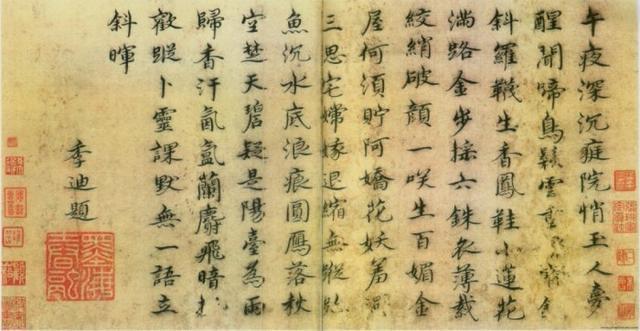 午夜深沉庭院悄玉人夢
醒聞啼鳥鬆雲
斜羅韈生香鳳鞋小蓮花
滿路金步採六銖衣薄裁
絞綃破顏一咲生百媚金
屋何須貯阿嬌花妖羞
三思宅嫦娥退縮無蹤跡
魚沉水底浪痕圓鴈落秋
空楚天碧疑是陽臺為雨
歸香汗氤氳蘭麝飛暗
歡蹤卜靈課默無一語立
斜暉
季迪題